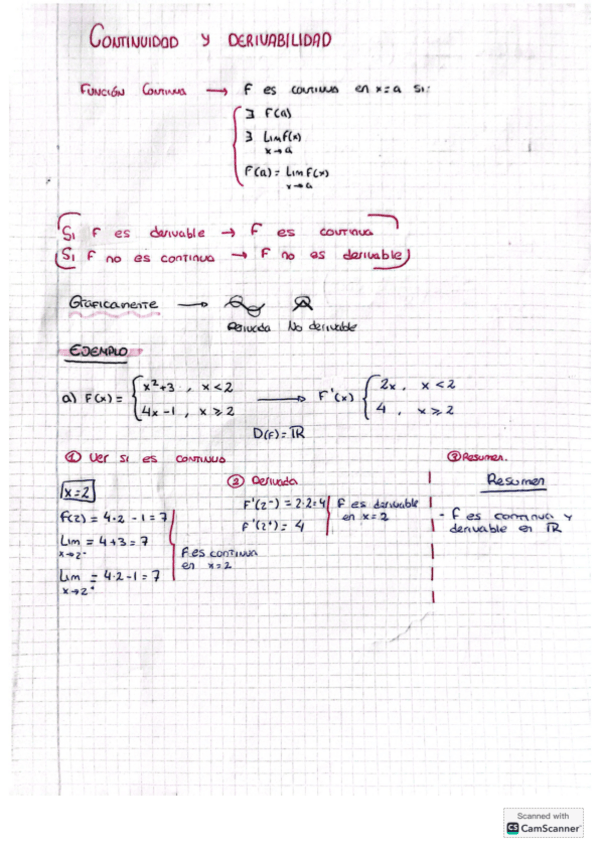 CONTINUIDAD Y DERIVABILIDAD
FUNCIÓN CONTINUA → F es continua en x=a si:
∃ F(a)
∃ Lim F(x)
x→a
F(a) = Lim F(x)
x→a
Si F es derivable → F es continua
Si F no es continua → F no es derivable
Gráficamente →
Derivada No derivable
EJEMPLO
a) F(x) = { x²+3 , x < 2 → F'(x) { 2x , x < 2
4x-1 , x ≥ 2 4 , x ≥ 2
D(F) = ℝ
① Ver si es continua
x=2
f(2) = 4·2-1 = 7
Lim = 4+3 = 7
x→2⁻
Lim = 4·2-1 = 7
x→2⁺
F es continua
en x=2
② Derivada
F'(2⁻) = 2·2=4
F'(2⁺) = 4
F es derivable
en x=2
③ Resumen.
Resumen
- F es continua y
derivable en ℝ
Scanned with
CS CamScanner